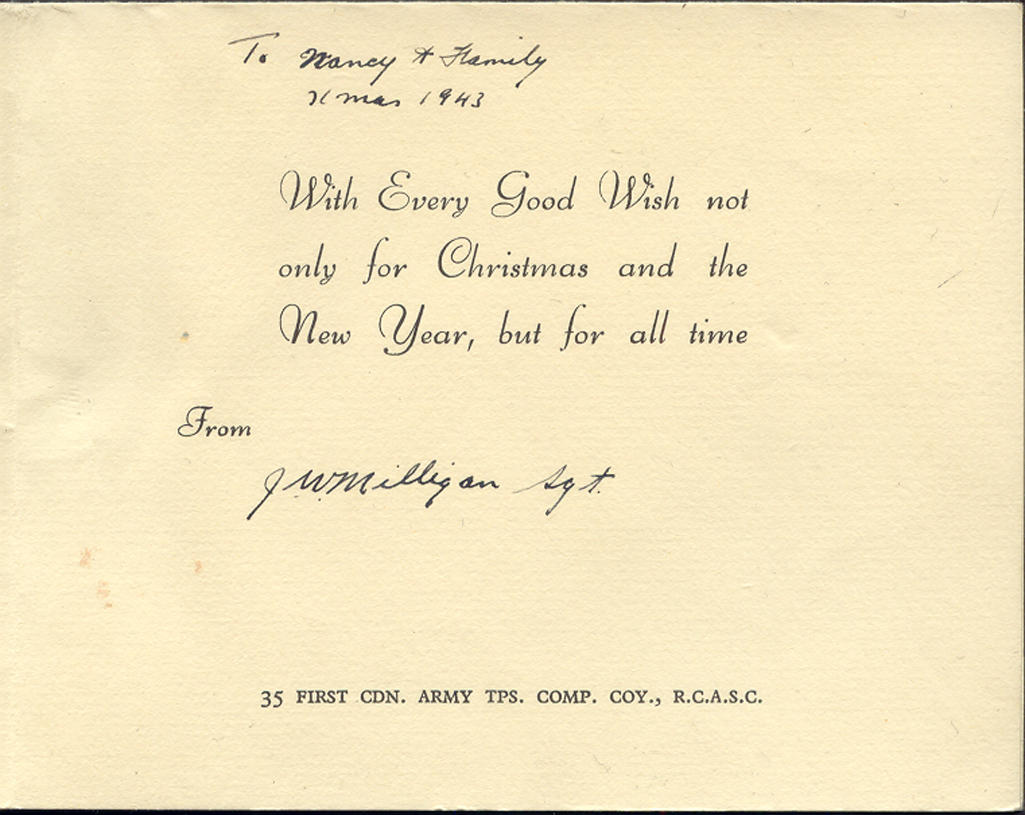 To Nancy & Family
Xmas 1943
With Every Good Wish not
only for Christmas and the
New Year, but for all time
From
J W Milligan Sgt.
35 FIRST CDN. ARMY TPS. COMP. COY., R.C.A.S.C.